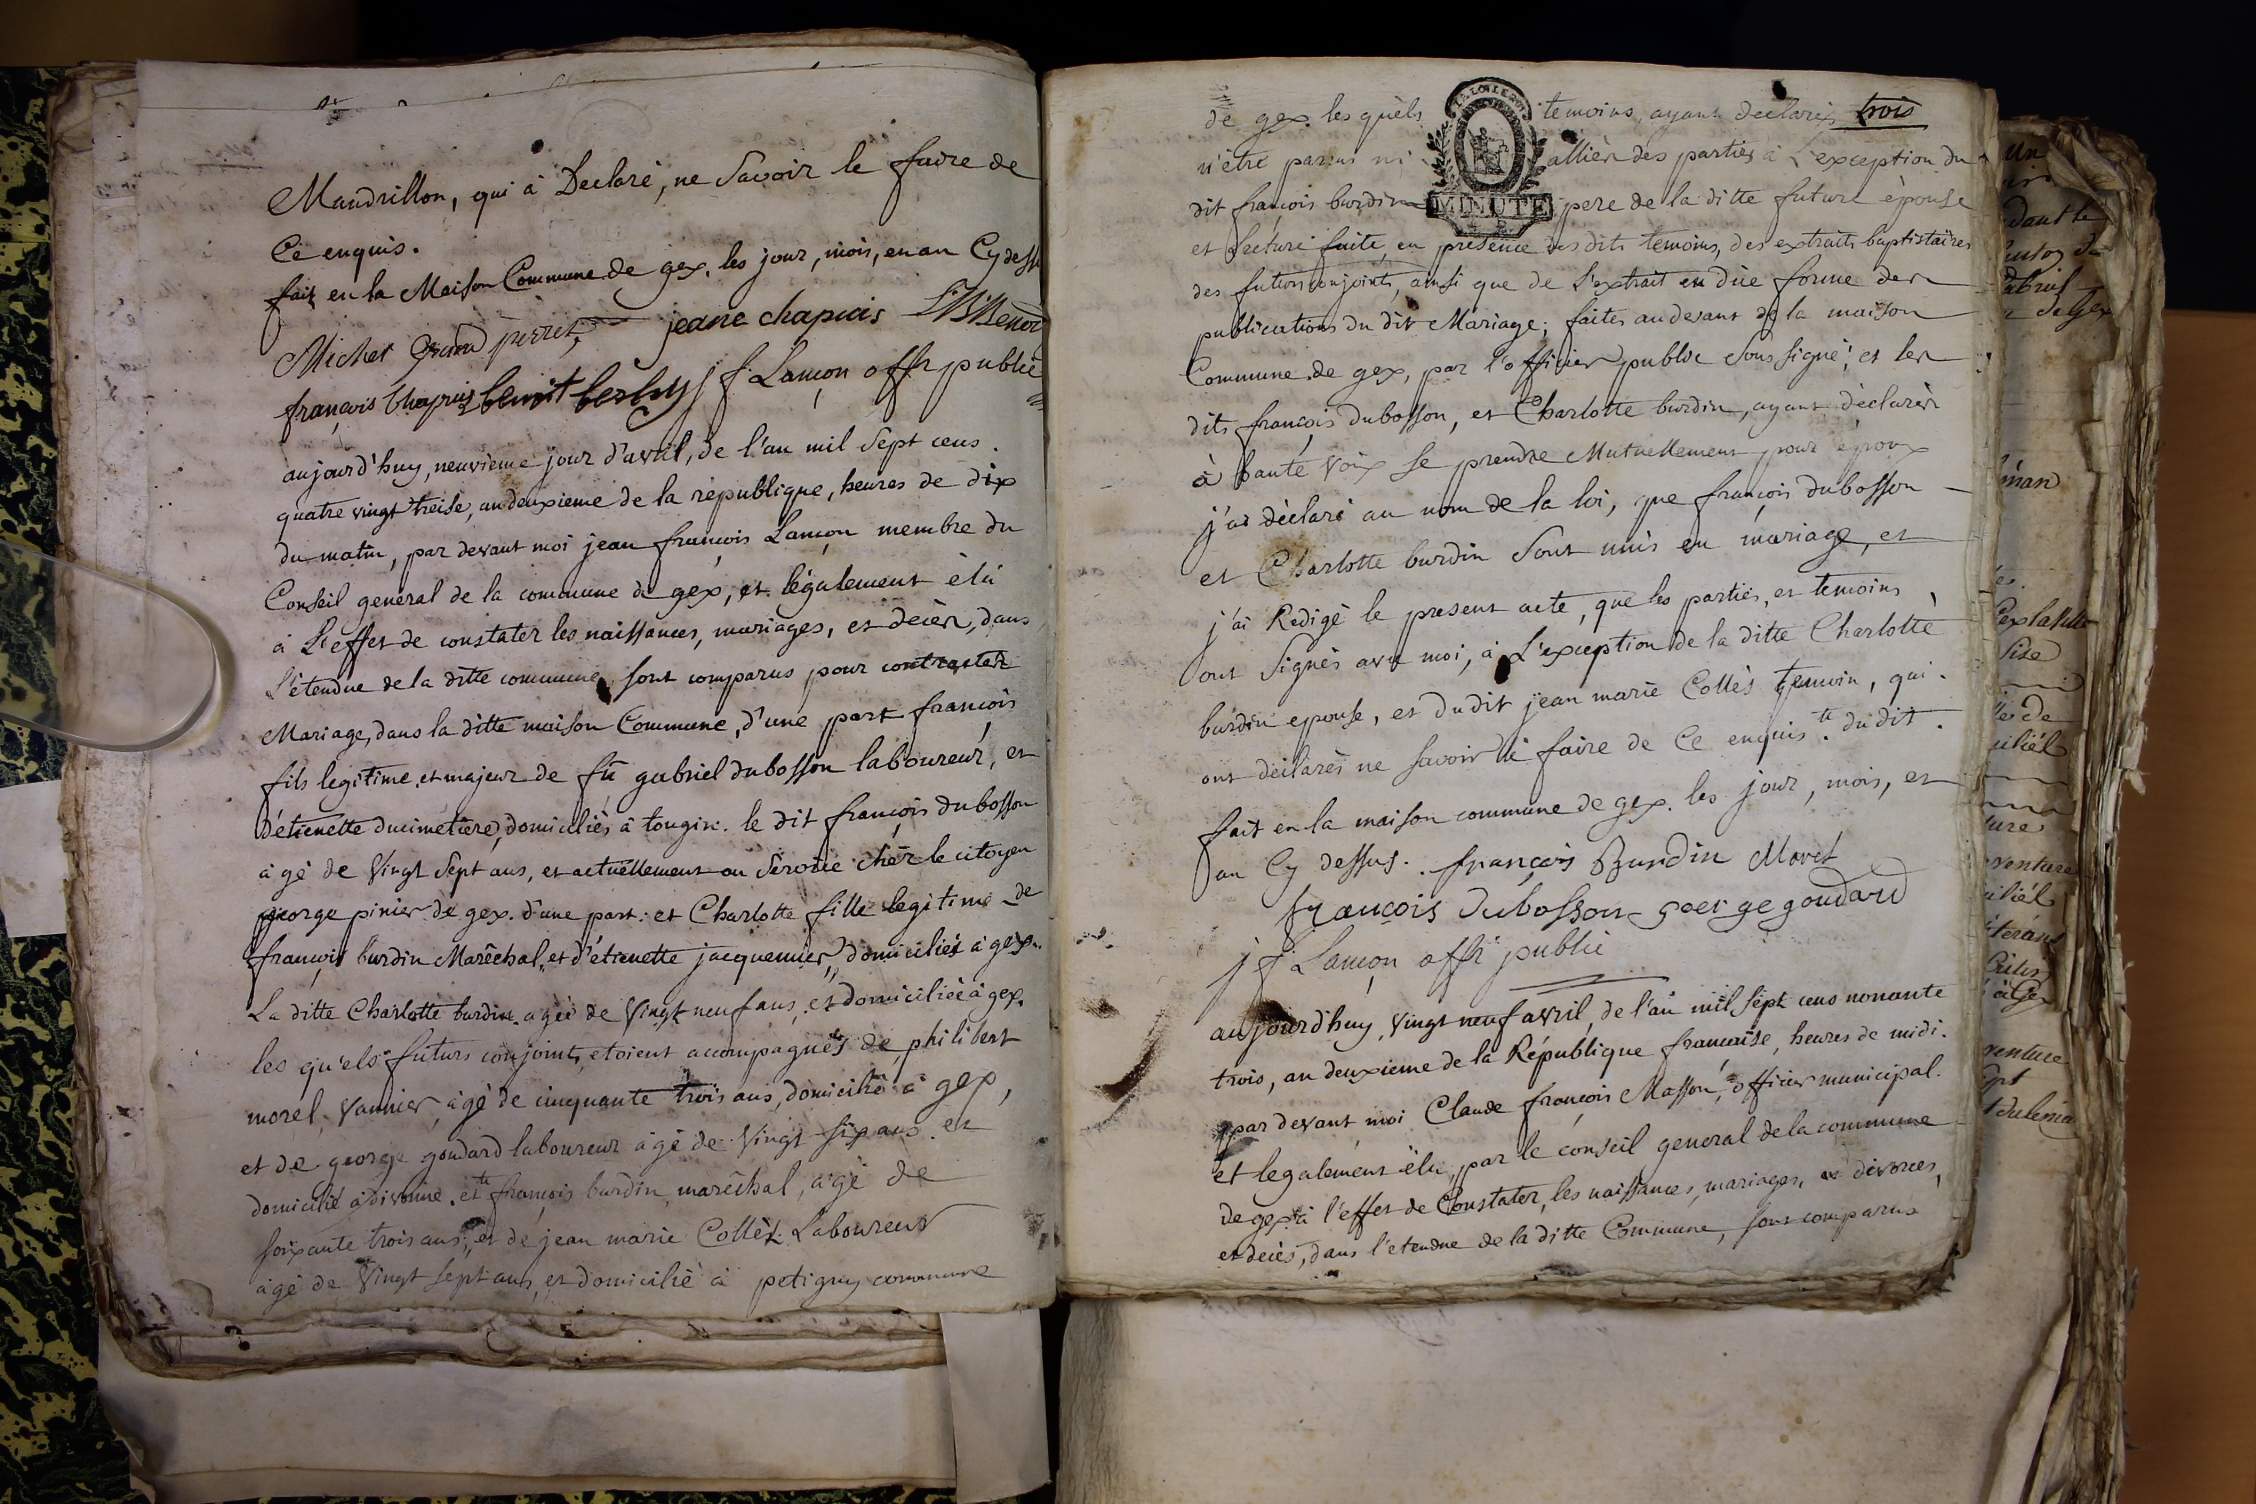 Mandrillon, qui à Declaré, ne Savoir le faire de
Ce enquis.
fait en la Maison Commune de gex, les jour, mois, en an Cy dess
Michel grand perret, jeane chapuis
françois Chapuis benoit j f. Lançon offr public
aujourd'huy, neuvieme jour d'avril, de l'an mil Sept cens
quatre vingt treise, an deuxieme de la république, heures de dix
du matin, par devant moi jean françois Lançon membre du
Conseil general de la commune de gex, et légalement élu
à L'effet de constater les naissances, mariages, et décès, dans
L'étendue de la ditte commune, sont comparus pour contracter
Mariage, dans la ditte maison Commune, d'une part françois
fils legitime et majeur de fû gabriel dubosson laboureur, et
d'étienette ducimetiere, domiciliés à tougin. le dit françois dubosson
âgé de Vingt Sept ans, et actuellement au Service chéz le citoyen
george pinier de gex. d'une part: et Charlotte fille legitime de
françois burdin Marêchal, et d'étienette jacquemier, domiciliés à gex.
La ditte Charlotte burdin agéé de Vingt neuf ans, et domiciliéé à gex.
les qu'els futurs conjoints, etoient accompagnés de philibert
morel, Vannier, âgé de cinquante trois ans, domicilié à gex,
et de george goudard laboureur âgé de Vingt six ans et
domicilié à divonne. et françois burdin marêchal, âgé de
soixante trois ans, et de jean marie Collèt Laboureur
âgé de Vingt sept ans, et domicilié à petigny commune
de gex. les quèls temoins, ayant declarés trois
n'être parens ni alliés des parties à L'exception du
dit françois burdin MINUTE pere de la ditte future épouse
et lecture faite, en présence des dits temoins, des extraits baptistaires
des futurs conjoints, ainsi que de L'extrait en dûe forme des
publications du dit Mariage, faites au devant de la maison
Commune de gex, par l'officier public Sous signé; et les
dits françois dubosson, et Charlotte burdin, ayant déclarés
à haute voix se prendre Mutuellement pour époux
j'ai déclaré au nom de la loi, que françois dubosson
et Charlotte burdin Sont unis en mariage, et
j'ai Redigé le present acte, que les parties, et temoins
ont Signés avec moi, à L'exception de la ditte Charlotte
burdin epouse, et du dit jean marie Collès temoin, qui
ont déclarés ne savoir le faire de Ce enquis te. du dit.
fait en la maison commune de gex. les jour, mois, et
an Cy dessus. françois Burdin Morel
françois dubosson george goudard
j f. Lançon offr public
aujourdhuy, Vingt neuf avril, de l'an mil sept cens nonante
trois, an deuxieme de la République francaise, heures de midi.
par devant moi Claude françois Masson, officier municipal.
et legalement élu, par le conseil general de la commune
de gex à l'effet de Constater, les naissances, mariages, divorces,
et decès, dans l'etendue de la ditte Commune, sont comparus